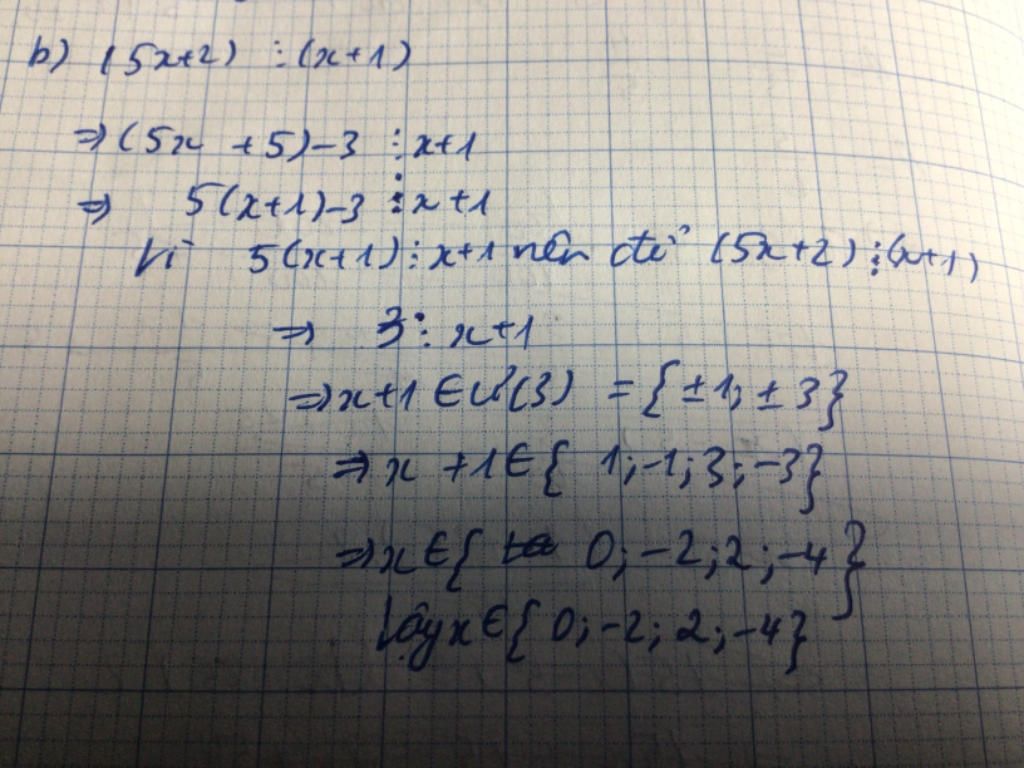 b) (5x+2) ⋮ (x+1)
⇒ (5x +5)-3 ⋮ x+1
⇒ 5(x+1)-3 ⋮ x+1
Vì 5(x+1) ⋮ x+1 nên để (5x+2) ⋮ (x+1)
⇒ 3 ⋮ x+1
⇒ x+1 ∈ Ư(3) = {±1; ±3}
⇒ x +1 ∈ { 1; -1; 3; -3}
⇒ x ∈ { 0; -2; 2; -4}
Vậy x ∈ { 0; -2; 2; -4}